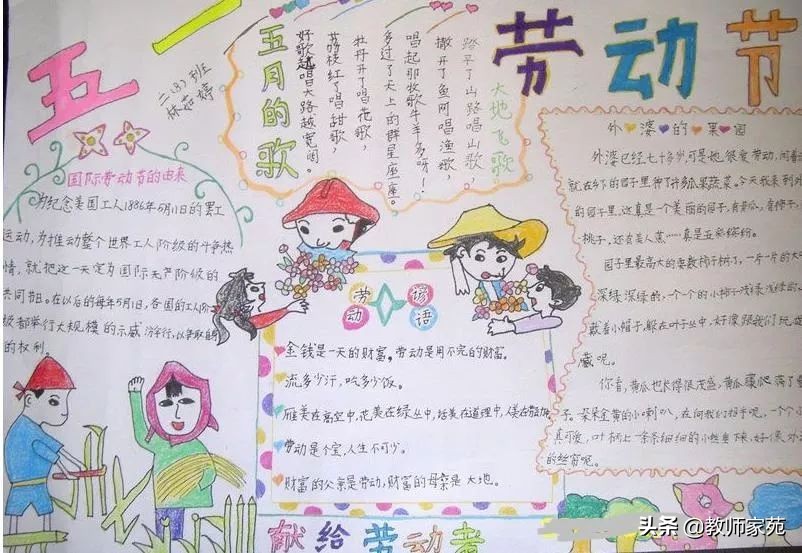 五一
劳动节
二(8)班
林茹婷
五月的歌
大地飞歌
踏平了山路唱山歌，
撒开了鱼网唱渔歌，
唱起那牧歌牛羊多呀！
多过了天上的群星座座。
牡丹开了唱花歌，
荔枝红了唱甜歌，
好歌越唱大路越宽阔。
国际劳动节的由来
为纪念美国工人1886年5月1日的罢工
运动，为推动整个世界工人阶级的斗争热
情，就把这一天定为国际无产阶级的
共同节日。在以后的每年5月1日，各国的工人阶
级都举行大规模的示威游行，以争取自
的权利。
外婆的果园
外婆已经七十多岁，可是她很爱劳动，闲着
就在乡下的园子里种了许多瓜果蔬菜。今天我来到外
的园子里，这真是一个美丽的园子，有黄瓜，有柿子，
桃子，还有美人蕉……真是五彩缤纷。
园子里最高大的要数柿子树了，一片一片的大叶
深绿深绿的，一个一个的小柿子浅绿浅绿的，
戴着小帽子，躲在叶子丛中，好像跟我们玩
藏呢。
你看，黄瓜也长得很茂盛，黄瓜藤爬满了
子。朵朵金黄的小喇叭，在向我们招手呢，一个个
真可爱，叶柄上一条条细细的小丝垂下来，好像
的丝窗呢。
劳动谚语
金钱是一天的财富。劳动是用不完的财富。
流多少汗，吃多少饭。
雁美在高空中，花美在绿丛中，话美在道理中，人美在
劳动是个宝，人生不可少。
财富的父亲是劳动，财富的母亲是大地。
献给劳动者
头条 @教师家苑